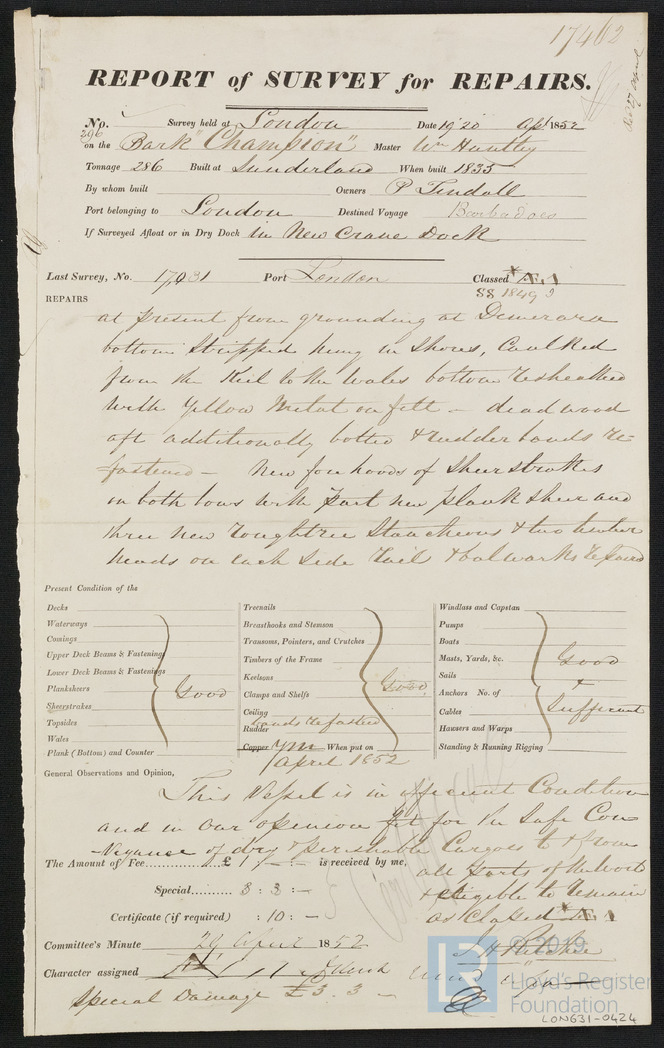 17402
REPORT of SURVEY for REPAIRS.
No. 296 Survey held at London Date 19 & 20 Apl 1852
on the Bark "Champion" Master Wm Huntley
Tonnage 286 Built at Sunderland When built 1835
By whom built Owners P Tindall
Port belonging to London Destined Voyage Barbadoes
If Surveyed Afloat or in Dry Dock in New Crane Dock
Last Survey, No. 17,031 Port London Classed * Æ.1
SS 1849
REPAIRS
at present from grounding at Demerara
bottom stripped hung in Shores, Caulked
from the Keel to the Wales bottom resheathed
with Yellow Metal on felt – deadwood
aft additionally bolted & rudder bands re=
fastened – New fore hoods of Sheerstrakes
on both bows with part new plank sheer and
three new roughtree Stancheons & two timber
heads on each side rail & bulwarks repaired
Present Condition of the
Decks
Waterways
Comings
Upper Deck Beams & Fastenings
Lower Deck Beams & Fastenings
Planksheers
Sheerstrakes
Topsides
Wales
Plank (Bottom) and Counter
Good
Treenails
Breasthooks and Stemson
Transoms, Pointers, and Crutches
Timbers of the Frame
Keelsons
Clamps and Shelfs
Ceiling
Rudder bands refasted
Copper YM When put on
April 1852
Good
Windlass and Capstan
Pumps
Boats
Masts, Yards, &c.
Sails
Anchors No. of
Cables
Hawsers and Warps
Standing & Running Rigging
Good
&
Sufficient
General Observations and Opinion,
This Vessel is in efficient Condition
and in our opinion fit for the Safe Con
veyance of dry & perishable Cargoes to & from
all parts of the World
& eligible to remain
as Classed * Æ 1
The Amount of Fee £ 1 : – : – is received by me,
Special 3 : 3 : –
Certificate (if required) : 10 : –
J H Ritchie
Committee's Minute 29 April 1852
Character assigned Æ 1
Special Damage £3. 3 –
© 2019
Lloyd's Register
Foundation
LR
LON631-0424